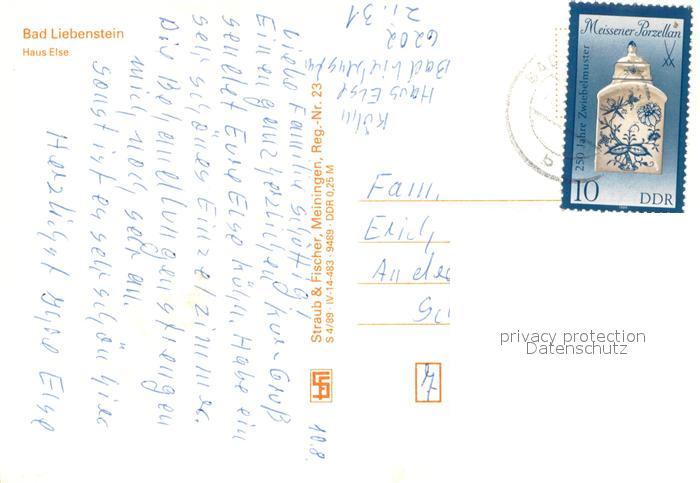 Bad Liebenstein
Haus Else
Liebe Familie
Einen ganz herzlichen Kur-Gruß
sendet Eure Else Köhn. Habe ein
sehr schönes Einzelzimmer.
Die Behandlungen strengen
mich noch sehr an.
Sonst ist es sehr schön hier
Herzlichst Eure Else
10.8.
Köhn
Haus Else
Bad Liebenstein
6202
Straub & Fischer, Meiningen, Reg.-Nr. 23
S 4/89 · IV-14-483 · 9489 · DDR 0,25 M
Meissener Porzellan
250 Jahre Zwiebelmuster
10 DDR
Fam.
Erich
7
privacy protection
Datenschutz